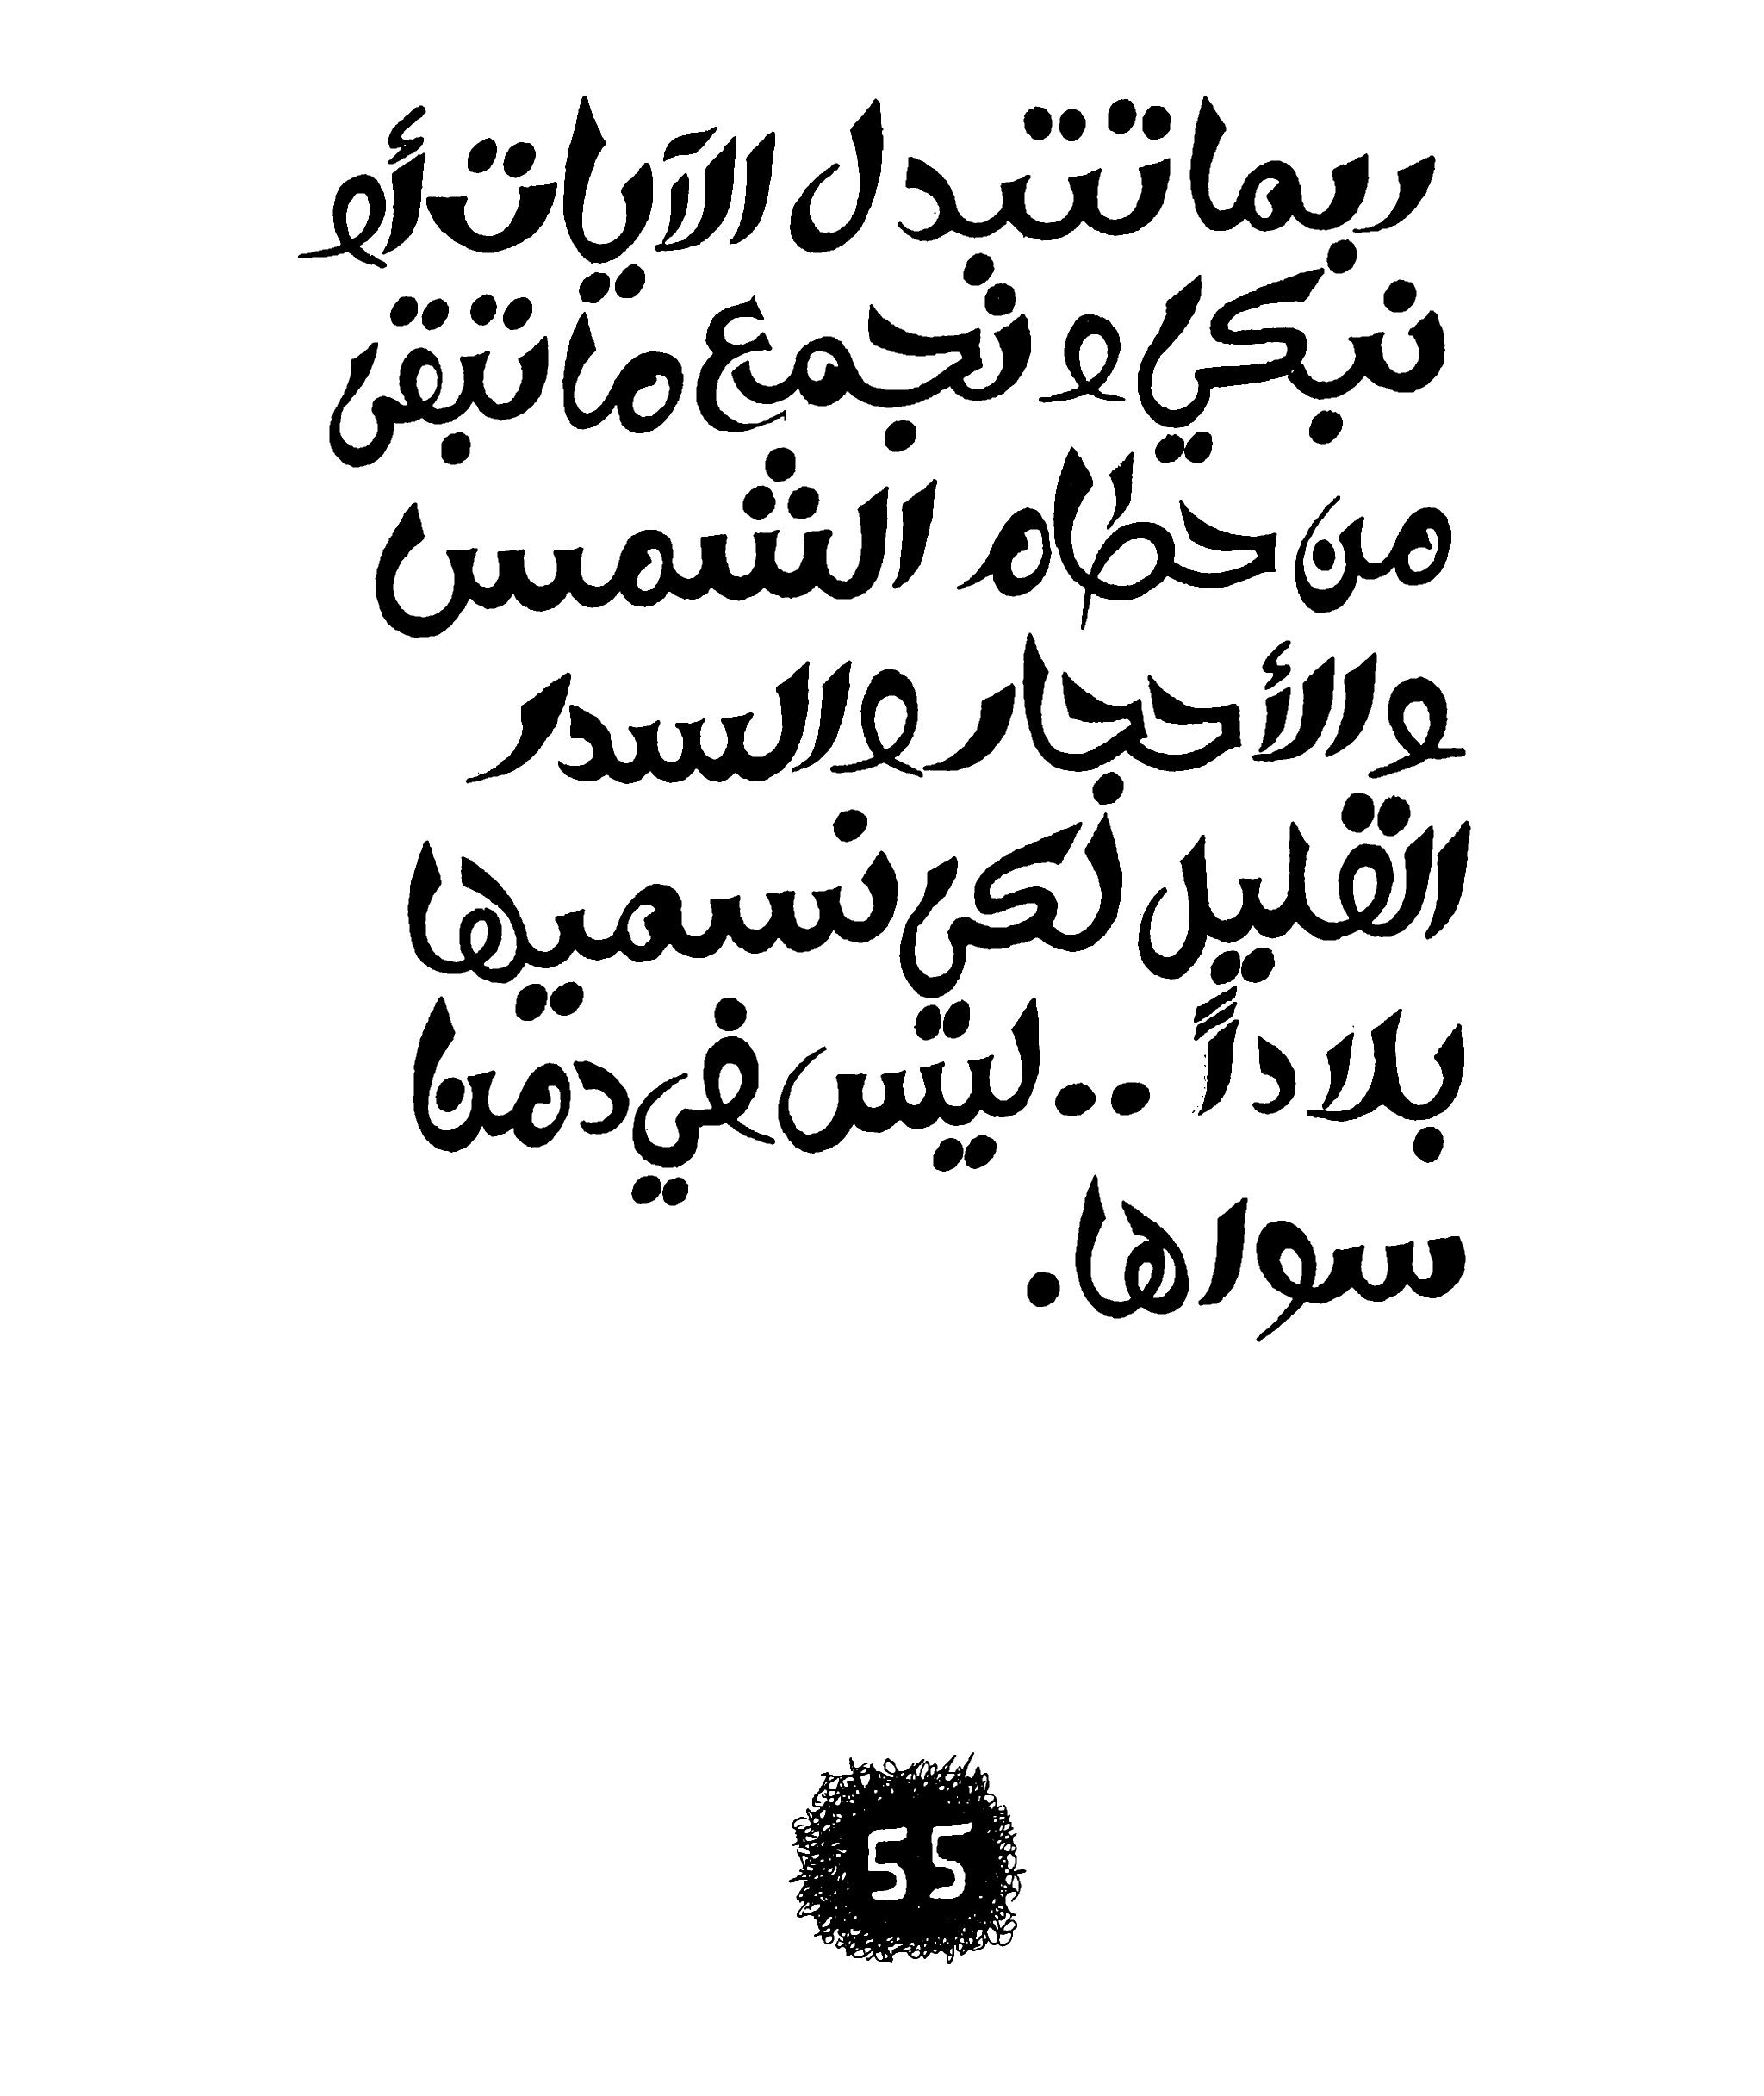 ربما تتبدل الآيات أو
نبكي و نجمع ما تبقى
من حطام الشمس
والأحجار والسدر
القليل لكي نسميها
بلاداً .. ليس في دمنا
سواها.
55